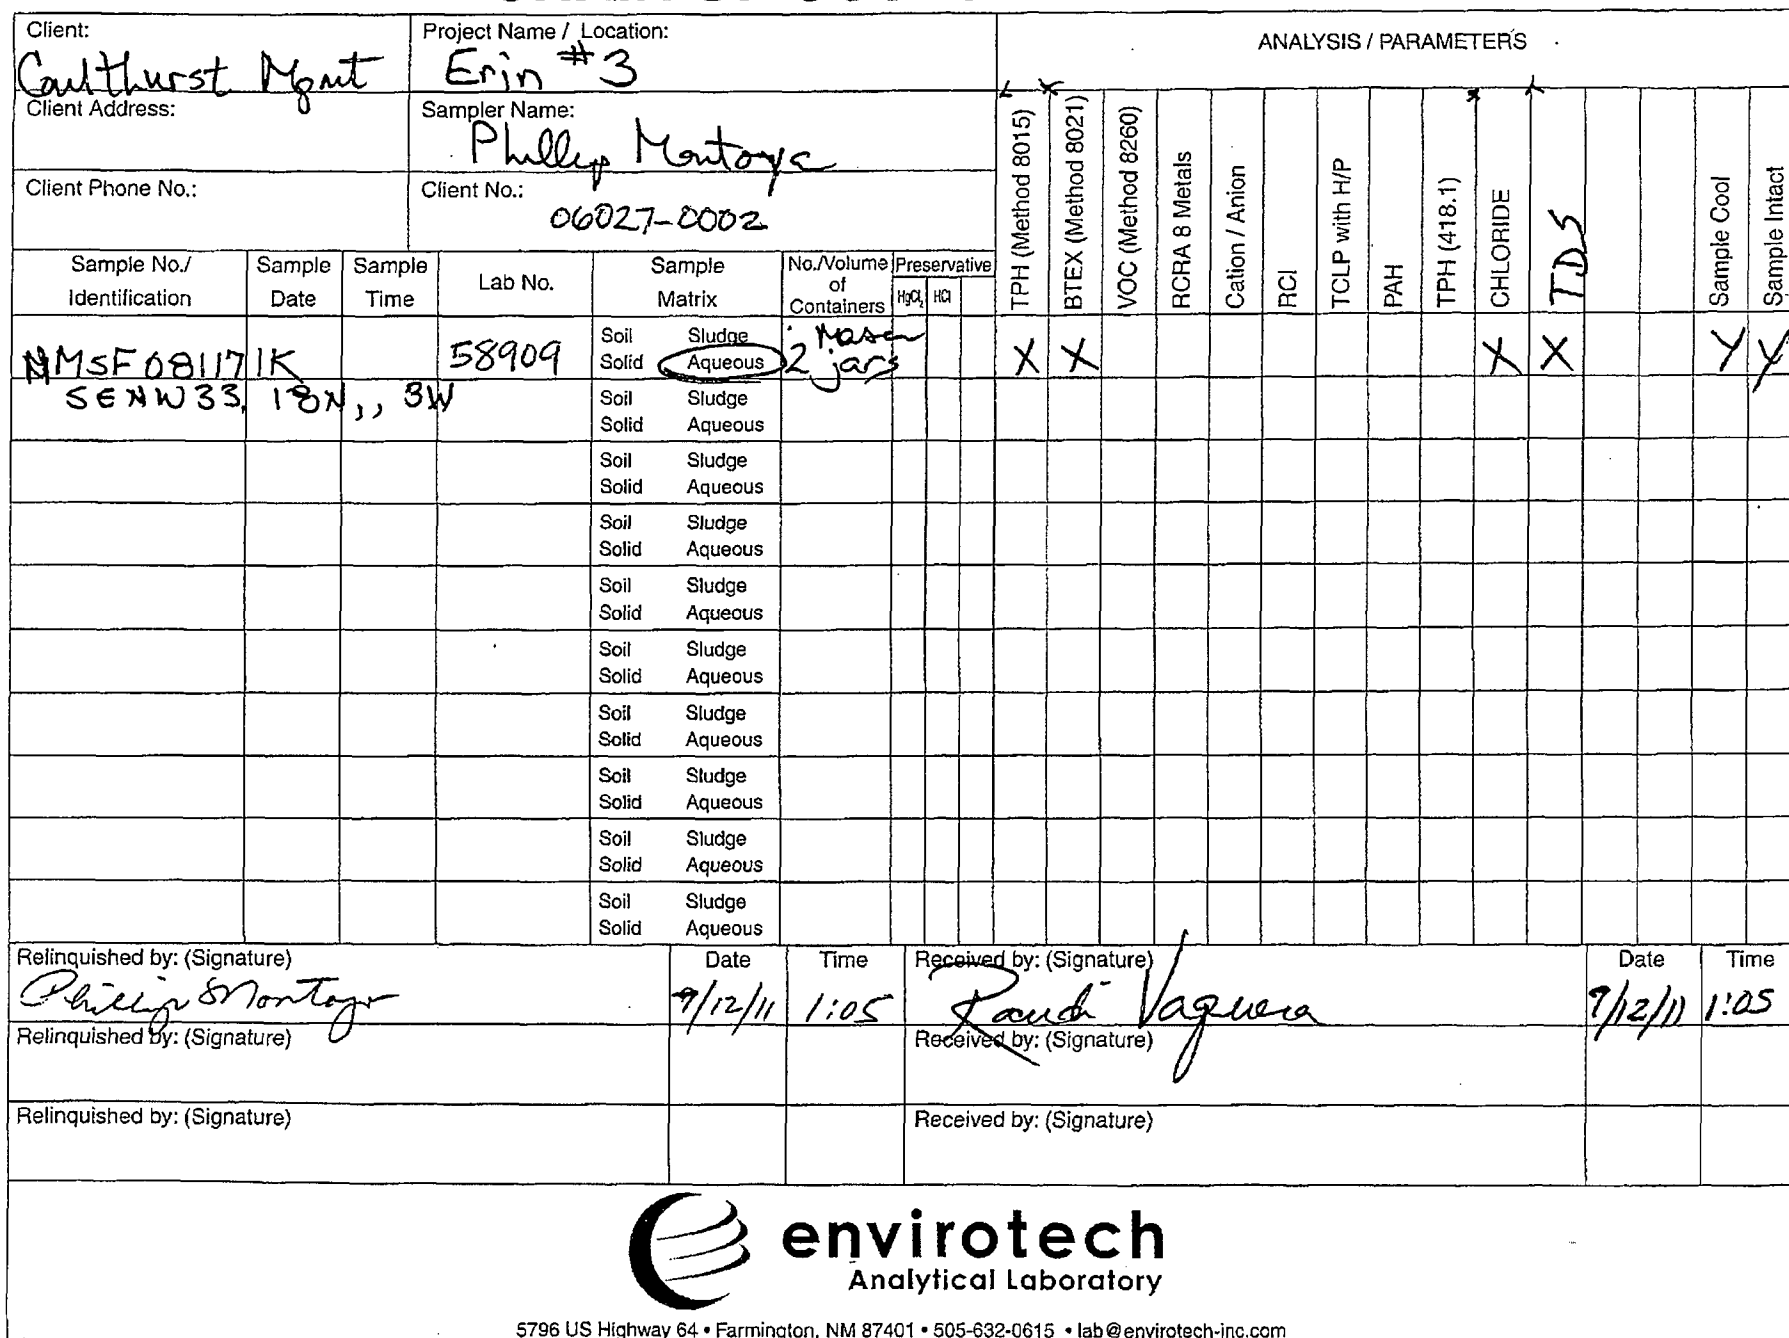 Client:
Coulthurst Mgmt
Project Name / Location:
Erin #3
ANALYSIS / PARAMETERS
Client Address:
Sampler Name:
Phillip Montoya
Client Phone No.:
Client No.:
06027-0002
Sample No./ Identification
Sample Date
Sample Time
Lab No.
Sample Matrix
No./Volume of Containers
Preservative
HgCl₂ HCl
TPH (Method 8015)
BTEX (Method 8021)
VOC (Method 8260)
RCRA 8 Metals
Cation / Anion
RCI
TCLP with H/P
PAH
TPH (418.1)
CHLORIDE
TDS
Sample Cool
Sample Intact
NMSF 081171K
58909
Soil Sludge
Solid Aqueous
Mason
2 jars
X X X X Y Y
SENW33, 18N,, 3W
Soil Sludge
Solid Aqueous
Soil Sludge
Solid Aqueous
Soil Sludge
Solid Aqueous
Soil Sludge
Solid Aqueous
Soil Sludge
Solid Aqueous
Soil Sludge
Solid Aqueous
Soil Sludge
Solid Aqueous
Soil Sludge
Solid Aqueous
Soil Sludge
Solid Aqueous
Relinquished by: (Signature)
Phillip Montoya
Date
9/12/11
Time
1:05
Received by: (Signature)
Date
9/12/11
Time
1:05
Relinquished by: (Signature)
Received by: (Signature)
Relinquished by: (Signature)
Received by: (Signature)
envirotech
Analytical Laboratory
5796 US Highway 64 • Farmington, NM 87401 • 505-632-0615 • lab@envirotech-inc.com